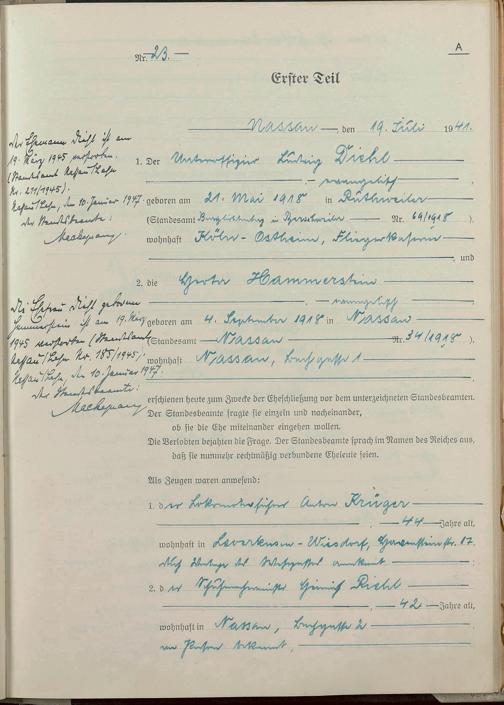 A
Nr. 23.
Erster Teil
Nassau, den 19. Juli 1941.
1. Der Unteroffizier Ludwig Diehl
evangelisch
geboren am 21. Mai 1918 in Ruthweiler
(Standesamt Burglichtenberg in Nr. 69/1918).
wohnhaft Köln-Ostheim, Fliegerkaserne
, und
2. die Gerta Hammerstein
evangelisch
geboren am 4. September 1918 in Nassau
(Standesamt Nassau Nr. 34/1918)
wohnhaft Nassau, 1
erschienen heute zum Zwecke der Eheschließung vor dem unterzeichneten Standesbeamten.
Der Standesbeamte fragte sie einzeln und nacheinander,
ob sie die Ehe miteinander eingehen wollen.
Die Verlobten bejahten die Frage. Der Standesbeamte sprach im Namen des Reiches aus,
daß sie nunmehr rechtmäßig verbundene Eheleute seien.
Als Zeugen waren anwesend:
1. der Lokomotivführer Anton Krüger
, 44 Jahre alt,
wohnhaft in Leverkusen-Wiesdorf, 17.
auf Vorlage des anerkannt
2. der Diehl
, 42 Jahre alt,
wohnhaft in Nassau, 2
von Person bekannt.
Der Ehemann Diehl ist am
19. März 1945 verstorben.
(Standesamt Nassau/Lahn
Nr. 211/1945).
Nassau/Lahn, den 10. Januar 1947
Der Standesbeamte:
Die Ehefrau Diehl geborene
Hammerstein ist am 19. März
1945 verstorben (Standesamt
Nassau/Lahn Nr. 185/1945).
Nassau/Lahn, den 10. Januar 1947.
Der Standesbeamte: